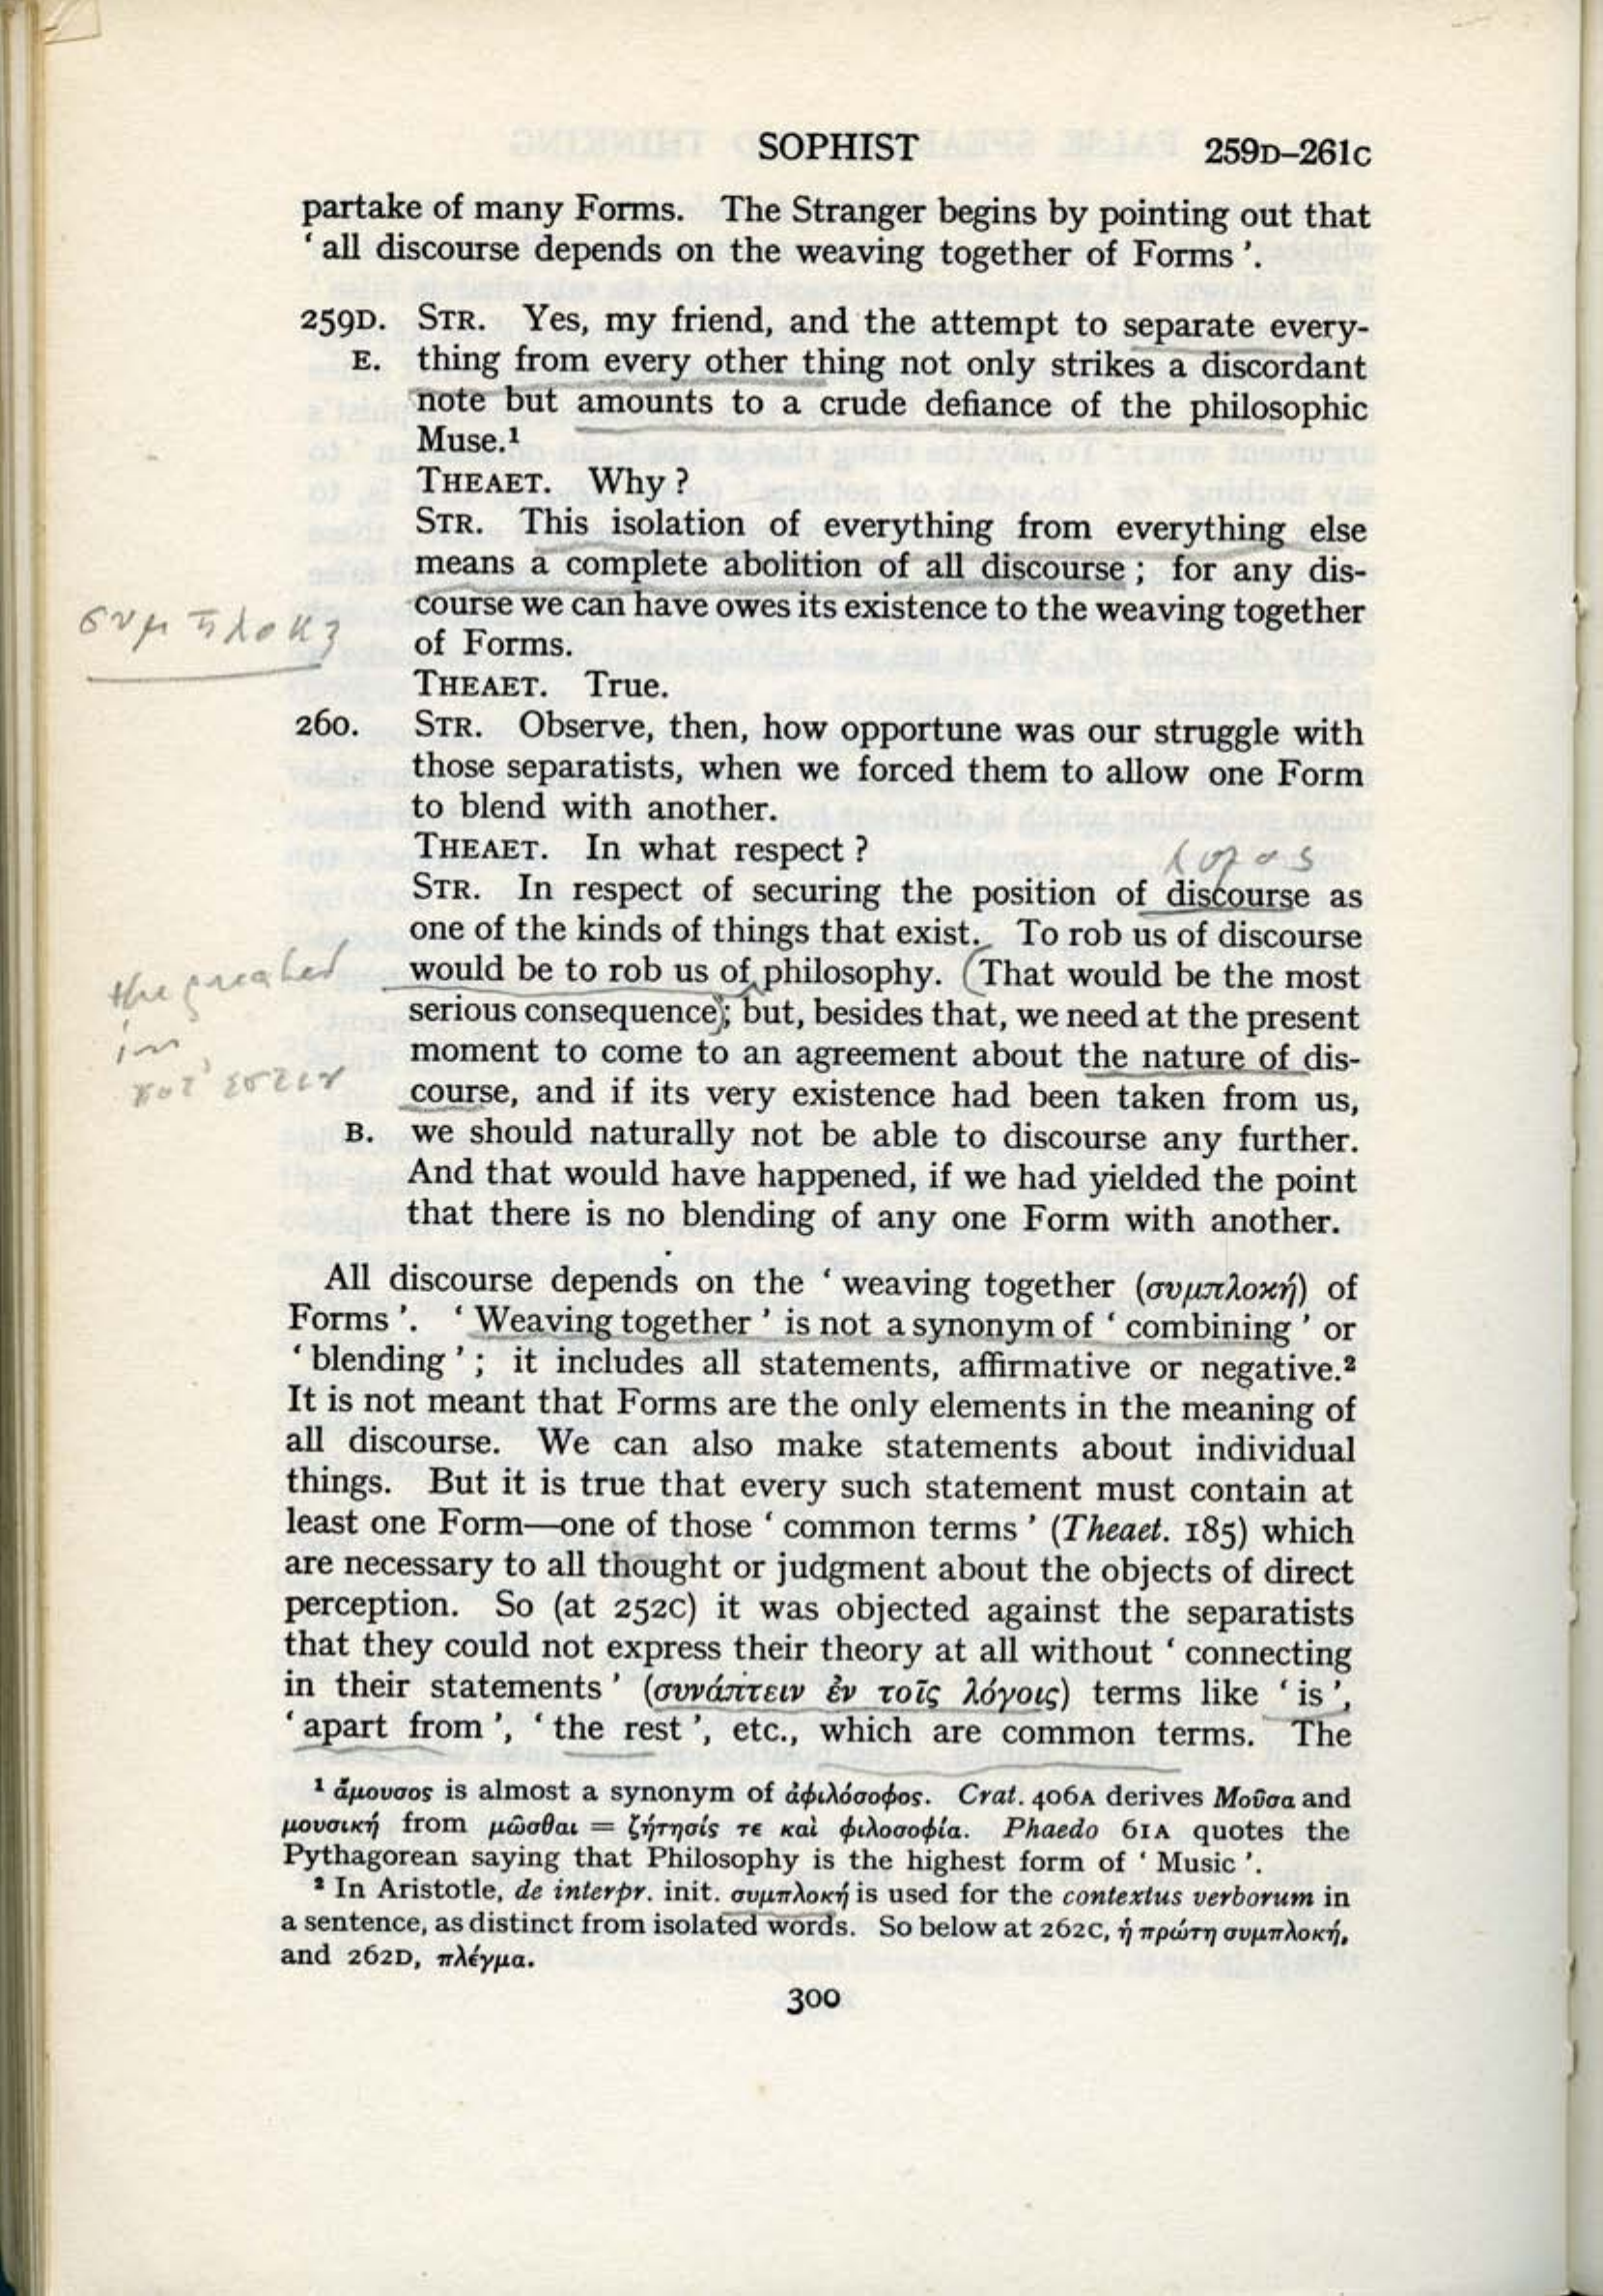 SOPHIST 259D–261C
partake of many Forms. The Stranger begins by pointing out that
‘ all discourse depends on the weaving together of Forms ’.
259D. STR. Yes, my friend, and the attempt to separate every-
E. thing from every other thing not only strikes a discordant
note but amounts to a crude defiance of the philosophic
Muse.¹
THEAET. Why ?
STR. This isolation of everything from everything else
means a complete abolition of all discourse ; for any dis-
course we can have owes its existence to the weaving together
συμπλοκη
of Forms.
THEAET. True.
260. STR. Observe, then, how opportune was our struggle with
those separatists, when we forced them to allow one Form
to blend with another.
THEAET. In what respect ?
λογος
STR. In respect of securing the position of discourse as
one of the kinds of things that exist. To rob us of discourse
would be to rob us of philosophy. (That would be the most
the
serious consequence); but, besides that, we need at the present
in
moment to come to an agreement about the nature of dis-
ποτ' εστιν
course, and if its very existence had been taken from us,
B. we should naturally not be able to discourse any further.
And that would have happened, if we had yielded the point
that there is no blending of any one Form with another.
All discourse depends on the ‘ weaving together (συμπλοκή) of
Forms ’. ‘ Weaving together ’ is not a synonym of ‘ combining ’ or
‘ blending ’ ; it includes all statements, affirmative or negative.²
It is not meant that Forms are the only elements in the meaning of
all discourse. We can also make statements about individual
things. But it is true that every such statement must contain at
least one Form—one of those ‘ common terms ’ (Theaet. 185) which
are necessary to all thought or judgment about the objects of direct
perception. So (at 252C) it was objected against the separatists
that they could not express their theory at all without ‘ connecting
in their statements ’ (συνάπτειν ἐν τοῖς λόγοις) terms like ‘ is ’,
‘ apart from ’, ‘ the rest ’, etc., which are common terms. The
¹ ἄμουσος is almost a synonym of ἀφιλόσοφος. Crat. 406A derives Μοῦσα and
μουσική from μῶσθαι = ζήτησίς τε καὶ φιλοσοφία. Phaedo 61A quotes the
Pythagorean saying that Philosophy is the highest form of ‘ Music ’.
² In Aristotle, de interpr. init. συμπλοκή is used for the contextus verborum in
a sentence, as distinct from isolated words. So below at 262C, ἡ πρώτη συμπλοκή,
and 262D, πλέγμα.
300